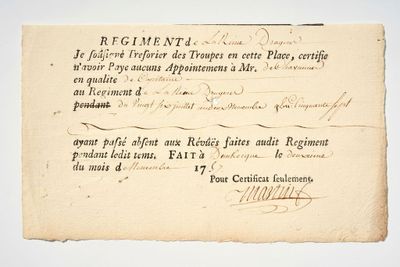 REGIMENT de La Reine Dragons
Je soûsigné Tresorier des Troupes en cette Place, certifie
n'avoir Payé aucuns Appointemens à Mr. de
en qualité de Capitaine
au Regiment de La Reine Dragons
pendant du Vingt Six juillet au deux Novembre cinquante Sept
ayant passé absent aux Révûës faites audit Regiment
pendant ledit tems. FAIT à Dunkerque le deuxieme
du mois de Novembre 1757
Pour Certificat seulement.